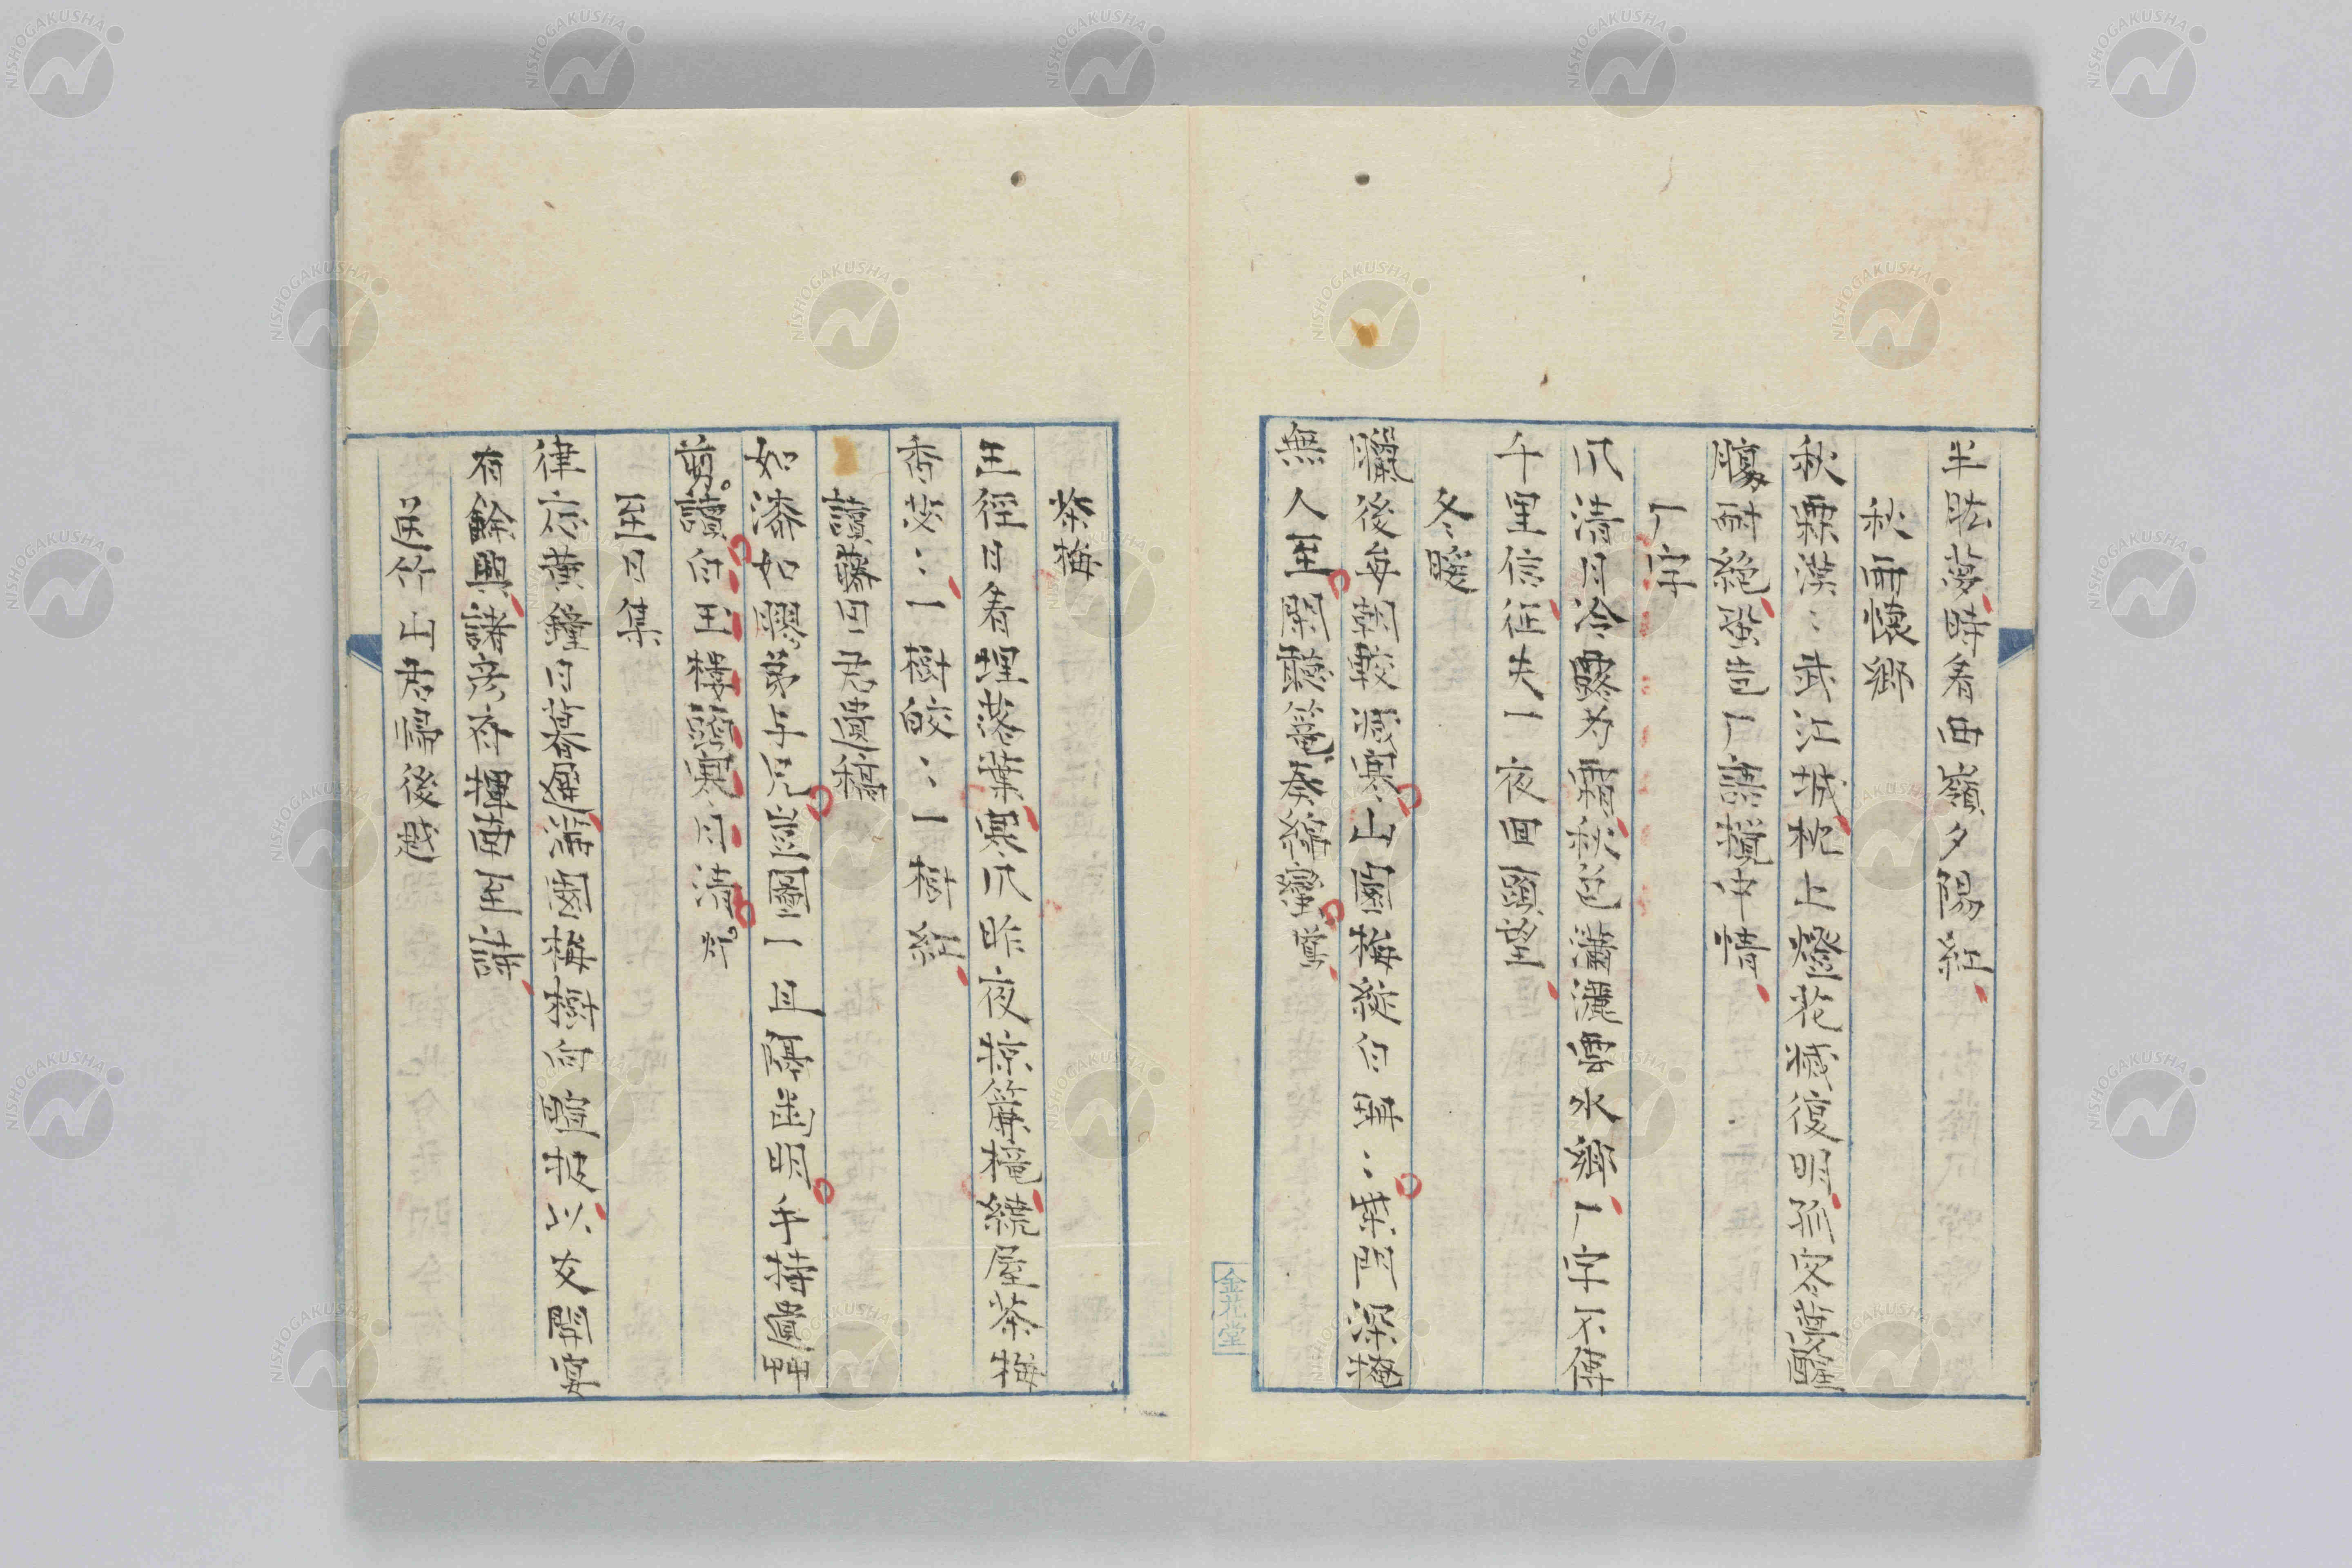 半時看西嶺夕陽紅
秋雨懷鄉
秋霖漠〻武江城枕上燈花滅復明孤客
耐絶蛩声人語攪中情
人字
爪清月冷露為霜秋色瀟灑雲水鄉人字不傳
千里信征夫一夜回頭望
冬暖
臘後每朝較減寒山園梅綻白興〻柴門深掩
無人至閑聽籠
茶梅
三徑日看埋落葉寒爪昨夜掠簷繞屋茶梅
香發〻一樹皎〻一樹紅
讀月君遺稿
如漆如膠弟与兄豈圖一旦隔幽明手持遺
剪讀向玉樓寒月清
至日集
律應黃鐘日暮遲滿園梅樹向暄披以文開宴
有餘興諸彥存揮南至詩
送竹山君歸後越
金花堂
NISHOGAKUSHA